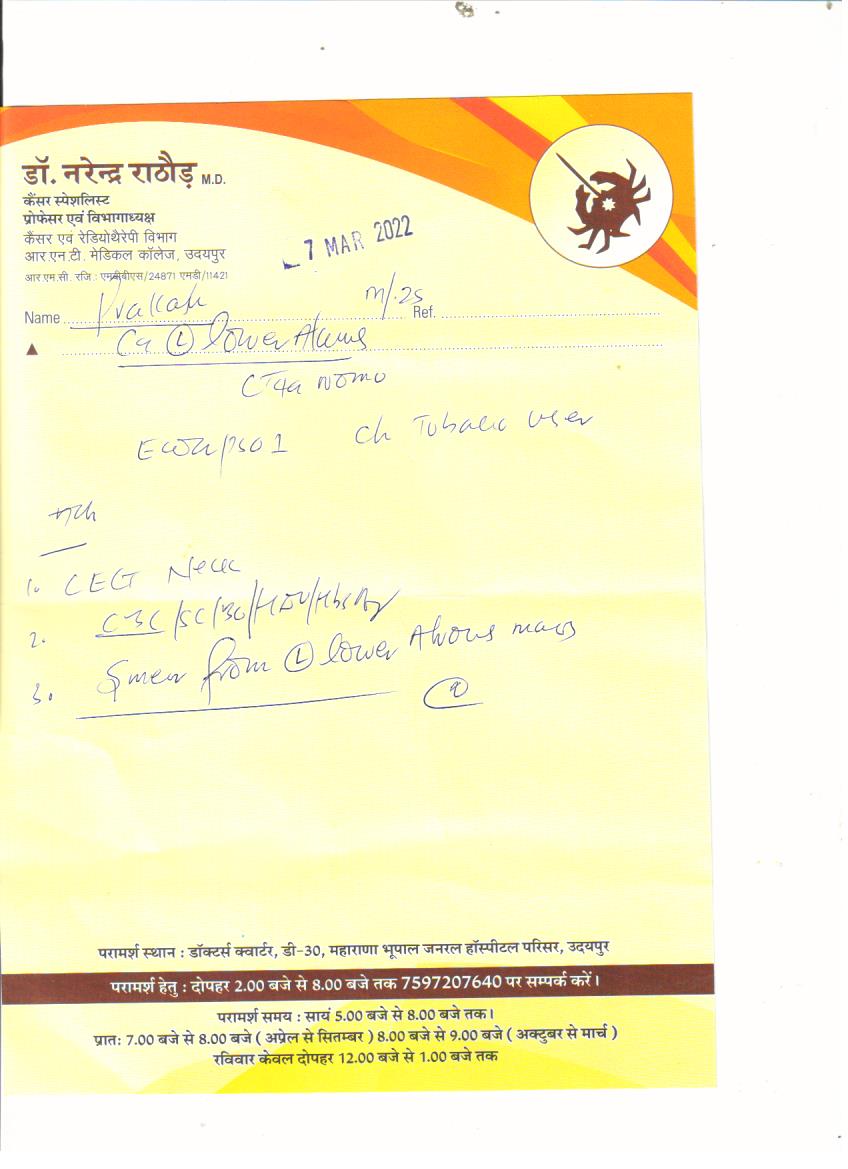 डॉ. नरेन्द्र राठौड़ M.D.
कैंसर स्पेशलिस्ट
प्रोफेसर एवं विभागाध्यक्ष
कैंसर एवं रेडियोथैरेपी विभाग
आर.एन.टी. मेडिकल कॉलेज, उदयपुर
आर.एम.सी. रजि.: एमबीबीएस/24871 एमडी/11421
7 MAR 2022
Name Prakash M/25 Ref.
Ca (L) lower
CT4a N0M0
Ch user
1. Neck
2. CBC
3. Smear from (L) lower mass
परामर्श स्थान : डॉक्टर्स क्वार्टर, डी-30, महाराणा भूपाल जनरल हॉस्पीटल परिसर, उदयपुर
परामर्श हेतु : दोपहर 2.00 बजे से 8.00 बजे तक 7597207640 पर सम्पर्क करें।
परामर्श समय : सायं 5.00 बजे से 8.00 बजे तक।
प्रातः 7.00 बजे से 8.00 बजे ( अप्रेल से सितम्बर ) 8.00 बजे से 9.00 बजे ( अक्टुबर से मार्च )
रविवार केवल दोपहर 12.00 बजे से 1.00 बजे तक